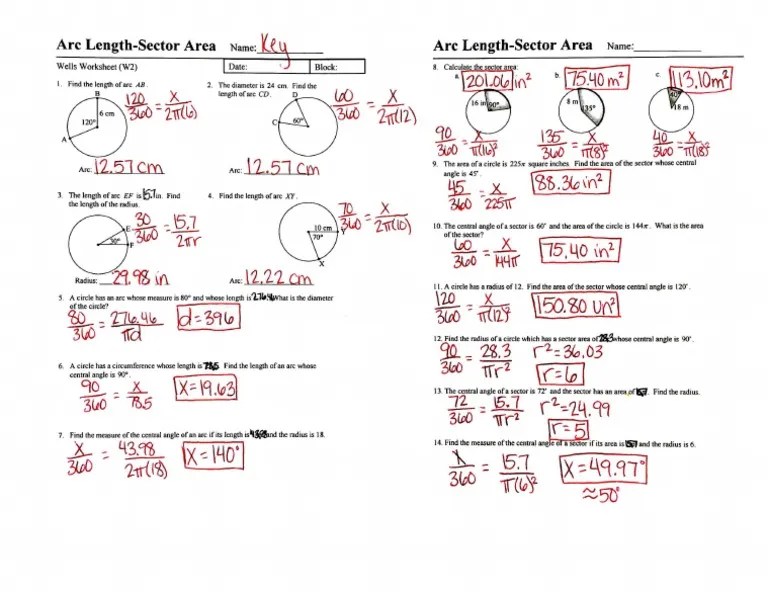 Arc Length-Sector Area Name: Key
Wells Worksheet (W2) Date: Block:
1. Find the length of arc AB.
B
6 cm
120°
A
120/360 = X/2π(6)
Arc: 12.57 cm
2. The diameter is 24 cm. Find the
length of arc CD.
D
C
60°
60/360 = X/2π(12)
Arc: 12.57 cm
3. The length of arc EF is 15.7 in. Find
the length of the radius.
E
30°
F
30/360 = 15.7/2πr
Radius: 29.98 in
4. Find the length of arc XY.
10 cm
Y
70°
X
70/360 = X/2π(10)
Arc: 12.22 cm
5. A circle has an arc whose measure is 80° and whose length is 276.46 What is the diameter
of the circle?
80/360 = 276.46/πd
d=396
6. A circle has a circumference whose length is 78.5. Find the length of an arc whose
central angle is 90°.
90/360 = X/78.5
X=19.63
7. Find the measure of the central angle of an arc if its length is 43.98 and the radius is 18.
X/360 = 43.98/2π(18)
X=140°
Arc Length-Sector Area Name:
8. Calculate the sector area:
a. 201.06 in²
16 in
90°
90/360 = X/π(16)²
b. 75.40 m²
8 m
135°
135/360 = X/π(8)²
c. 113.10 m²
40°
18 m
40/360 = X/π(18)²
9. The area of a circle is 225π square inches. Find the area of the sector whose central
angle is 45°.
45/360 = X/225π
88.36 in²
10. The central angle of a sector is 60° and the area of the circle is 144π. What is the area
of the sector?
60/360 = X/144π
75.40 in²
11. A circle has a radius of 12. Find the area of the sector whose central angle is 120°.
120/360 = X/π(12)²
150.80 un²
12. Find the radius of a circle which has a sector area of 28.3 whose central angle is 90°.
90/360 = 28.3/πr²
r²=36.03
r=6
13. The central angle of a sector is 72° and the sector has an area of 15.7. Find the radius.
72/360 = 15.7/πr²
r²=24.99
r=5
14. Find the measure of the central angle of a sector if its area is 15.7 and the radius is 6.
X/360 = 15.7/π(6)²
X=49.97°
≈50°